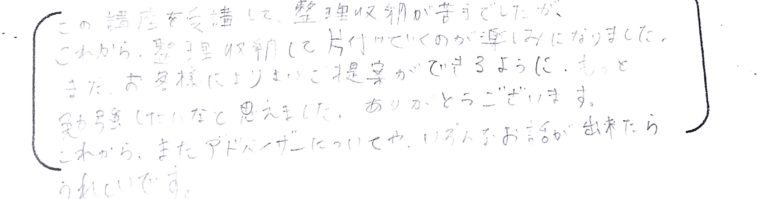 この講座を受講して、整理収納が苦手でしたが、
これから、整理収納して片付けていくのが楽しみになりました。
また、お客様によりよいご提案ができるように、もっと
勉強したいなと思えました。ありがとうございます。
これから、またアドバイザーについてや、いろんなお話が出来たら
うれしいです。